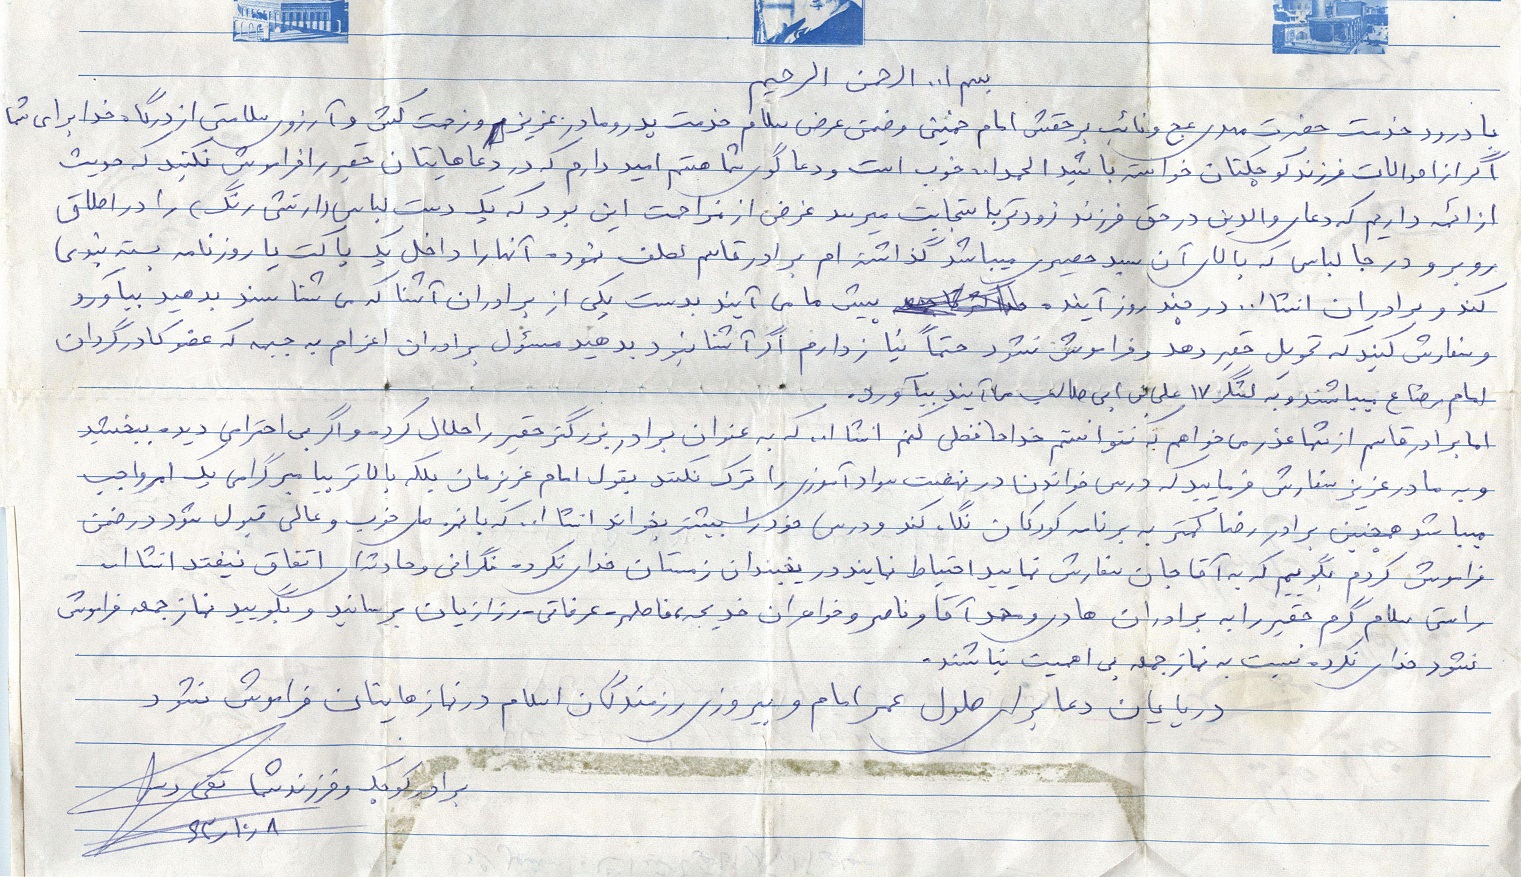 بسم ا.. الرحمن الرحیم
با درود خدمت حضرت مهدی عج و نائب برحقش امام خمینی و ضمن عرض سلام خدمت پدر و مادر عزیزم و زحمت کش و آرزوی سلامتی از درگاه خدا برای شما
اگر از احوالات فرزند کوچکتان خواسته باشید الحمدا.. خوب است و دعاگوی شما هستم امید دارم که در دعاهایتان حقیر را فراموش نکنید که حدیث
از ائمه داریم که دعای والدین در حق فرزند زودتر با ستجابت میرسد غرض از مزاحمت این بود که یک دست لباس (ارتشی رنگ) را در اطاق
روبرو در جا لباسی که بالای آن سبد حصیری میباشد گذاشته ام برادر قاسم لطف نموده آنها را داخل یک پاکت یا روزنامه بسته بندی
کند و برادران انشا ا.. در چند روز آینده پیش ما می آیند بدست یکی از برادران آشنا که می شناسند بدهید بیاورد
و سفارش کنید که تحویل حقیر دهد و فراموش نشود حتماً نیاز دارم اگر آشنا نبرد بدهید مسئول برادران اعزام به جبهه که عضو کادر گردان
امام رضا ع میباشند و به لشگر ۱۷ علی بن ابی طالب می آیند بیآورد.
اما برادر قاسم از شما عذر می خواهم که نتوانستم خداحافظی کنم انشا ا.. که به عنوان برادر بزرگتر حقیر را حلال کرده و اگر بی احترامی دیده ببخشید
و به مادر عزیز سفارش فرمایید که درس خواندن در نهضت سواد آموزی را ترک نکنند بقول امام عزیزمان بلکه بالاتر پیامبر گرامی یک امر واجب
میباشد همچنین برادر رضا کمتر به برنامه کودکان نگاه کند و درس خود را بیشتر بخواند انشا ا.. که با نمره های خوب و عالی قبول شود در ضمن
فراموش کردم بگویم که به آقاجان سفارش نمایید احتیاط نمایند در یخبندان زمستان خدای نکرده نگرانی و حادثه ای اتفاق نیفتد انشا ا..
راستی سلام گرم حقیر را به برادران هادی و آقا و ناصر و خواهران خدیجه، فاطمه - عرفاتی - رزازیان برسانید و بگویید نماز جمعه فراموش
نشود خدای نکرده نسبت به نماز جمعه بی اهمیت نباشند.
در پایان دعا برای طول عمر امام و پیروزی رزمندگان اسلام در نمازهایتان فراموش نشود
برادر کوچک و فرزند شما تقی
۶۳ر۱۰ر۸